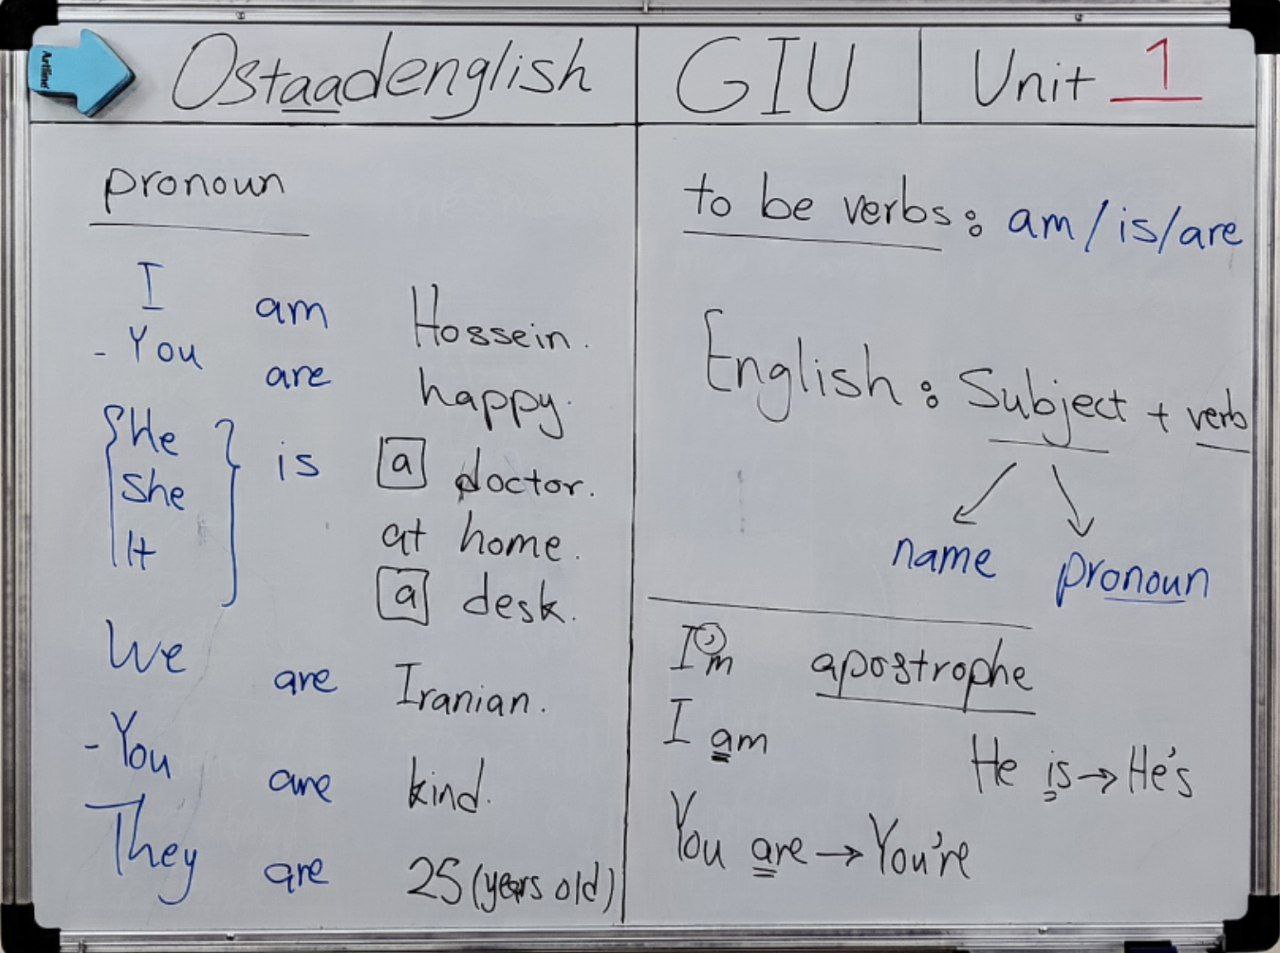 Artline
Ostaadenglish
GIU
Unit 1
pronoun
I am Hossein.
- You are happy.
He
She
It
is
a doctor.
at home.
a desk.
We are Iranian.
- You are kind.
They are 25 (years old)
to be verbs: am/is/are
English: Subject + verb
name pronoun
I'm apostrophe
I am
He is → He's
You are → You're